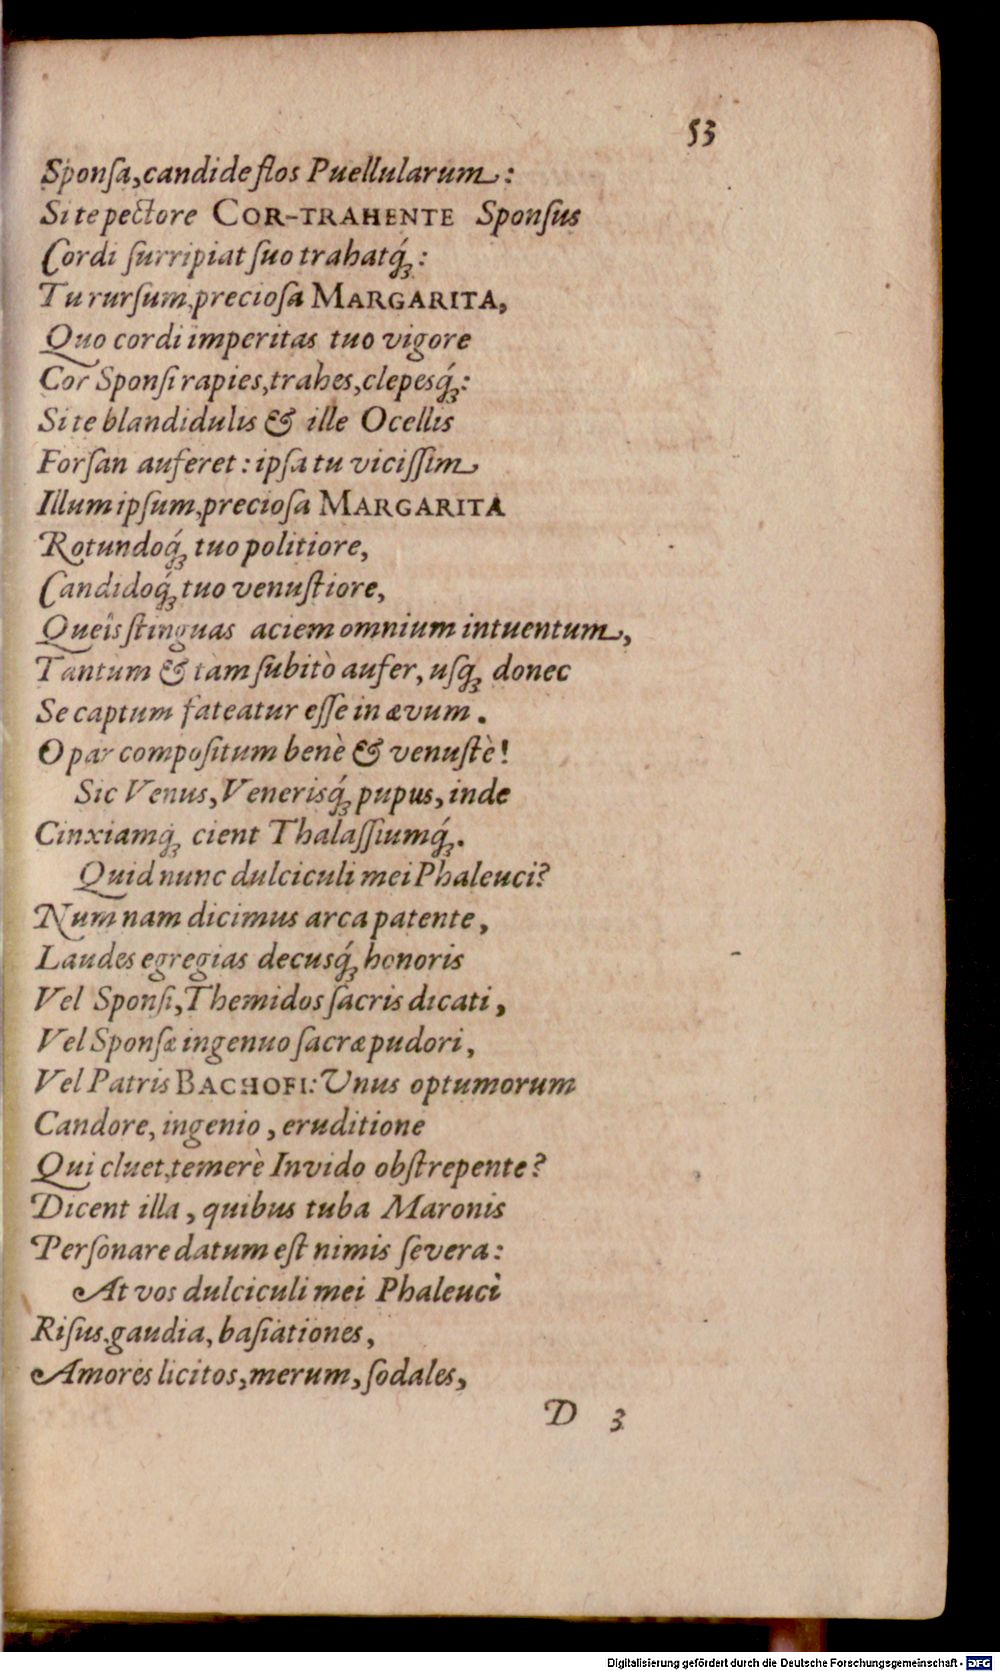 53
Sponſa, candide flos Puellularum:
Si te pectore COR-TRAHENTE Sponſus
Cordi ſurripiat ſuo trahatq́ꝫ:
Tu rurſum, precioſa MARGARITA,
Quo cordi imperitas tuo vigore
Cor Sponſi rapies, trahes, clepesq́ꝫ:
Si te blandidulis & ille Ocellis
Forſan auferet: ipſa tu viciſſim
Illum ipſum, precioſa MARGARITA
Rotundoq́ꝫ tuo politiore,
Candidoq́ꝫ tuo venuſtiore,
Queîs ſtinguas aciem omnium intuentum,
Tantum & tàm ſubitò aufer, uſqꝫ donec
Se captum fateatur eſſe in ævum.
O par compoſitum benè & venuſtè!
Sic Venus, Venerisq́ꝫ pupus, inde
Cinxiamq́ꝫ cient Thalaſſiumq́ꝫ.
Quid nunc dulciculi mei Phaleuci?
Num nam dicimus arca patente,
Laudes egregias decusq́ꝫ honoris
Vel Sponſi, Themidos ſacris dicati,
Vel Sponſæ ingenuo ſacræ pudori,
Vel Patris BACHOFI: Unus optumorum
Candore, ingenio, eruditione
Qui cluet, temerè Invido obſtrepente?
Dicent illa, quibus tuba Maronis
Perſonare datum eſt nimis ſevera:
At vos dulciculi mei Phaleuci
Riſus, gaudia, baſiationes,
Amores licitos, merum, ſodales,
D 3
Digitalisierung gefördert durch die Deutsche Forschungsgemeinschaft - DFG